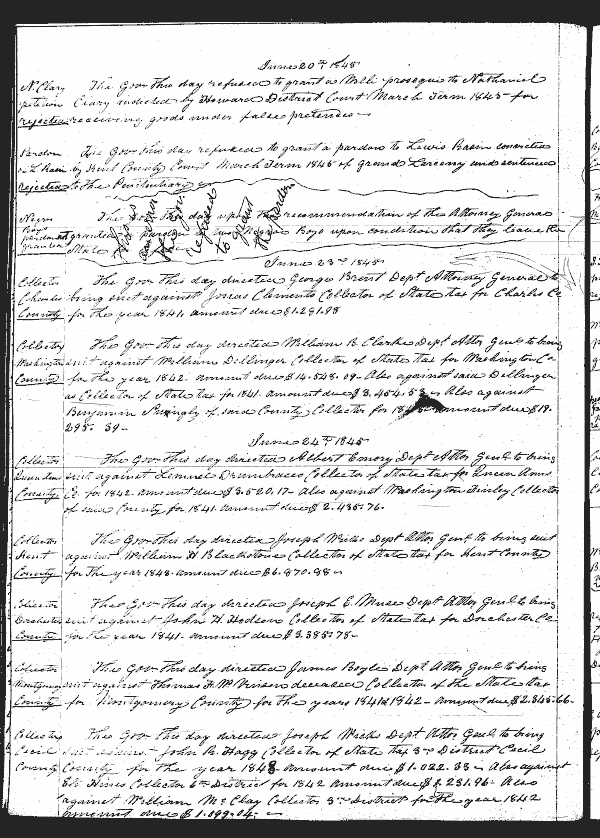 June 20th 1845
N. Clary The Gov. this day refused to grant a Nolli prosequi to Nathaniel
petition Clary indicted by Howard District Court March Term 1845 for
rejected receiving goods under false pretences
Pardon The Gov this day refused to grant a pardon to Lewis Basin convicted
to L Basin by Kent County Court March Term 1845 of Grand Larceny and sentenced
rejected to the Penitentiary
Negro The Gov this day upon the recommendation of the Attorney General
Boys pardoned granted a pardon to two Negro Boys upon condition that they leave the
granted State
June 23rd 1845
Collector The Gov this day directed George Brent Dept Attorney General to
Charles bring suit against Josias Clements Collector of State tax for Charles Co
County for the year 1841. amount due $1.291.98
Collector The Gov this day directed William B. Clarke Dept Attor Genl to bring
Washington suit against William Dellinger Collector of State tax for Washington Co
County for the year 1842. amount due $14.548.09 - Also against said Dellinger
as Collector of State tax for 1841. amount due $3.454.53 - Also against
Benjamin of said County Collector for amount due $19.
295. 39 -
June 24th 1845
Collector The Gov this day directed Albert Emory Dept Attor Genl to bring
Queen Anns suit against Lemuel Collector of State tax for Queen Anns
County Co. for 1842. amount due $3.520.17 - Also against Washington Finley Collector
of said County for 1841. amount due $2.435.76.
Collector The Gov this day directed Joseph Wicks Dept Attor Genl to bring suit
Kent against William H. Blackstone Collector of State tax for Kent County
County for the year 1843. amount due $6.870.98
Collector The Gov this day directed Joseph E. Muse Dept Attor Genl to bring
Dorchester suit against John H. Hodson Collector of State tax for Dorchester Co
County for the year 1841 - amount due $3.385.75 -
Collector The Gov this day directed James Boyle Dept Attor Genl to bring
Montgomery suit against Thomas F. W. Vinson deceased Collector of the State tax
County for Montgomery County for the years 1841 & 1842 - amount due $2.345.66.
Collector The Gov this day directed Joseph Wicks Dept Attor Genl to bring
Cecil suit against John R. Hagg Collector of State tax 3rd District Cecil
County County for the year 1843 amount due $1.022.33 - Also against
Eli Hines Collector 6th District for 1842 amount due $ 231.96 - Also
against William McClay Collector 3rd District for the year 1842
amount due $1.099.04.